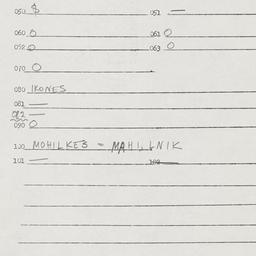 050 $ 051 —
060 0 061 0
062 0 063 0
070 0
080 IKONES
081 —
082 —
090 0
100 MOHILKES = MAHILNIK
101 — 102 —